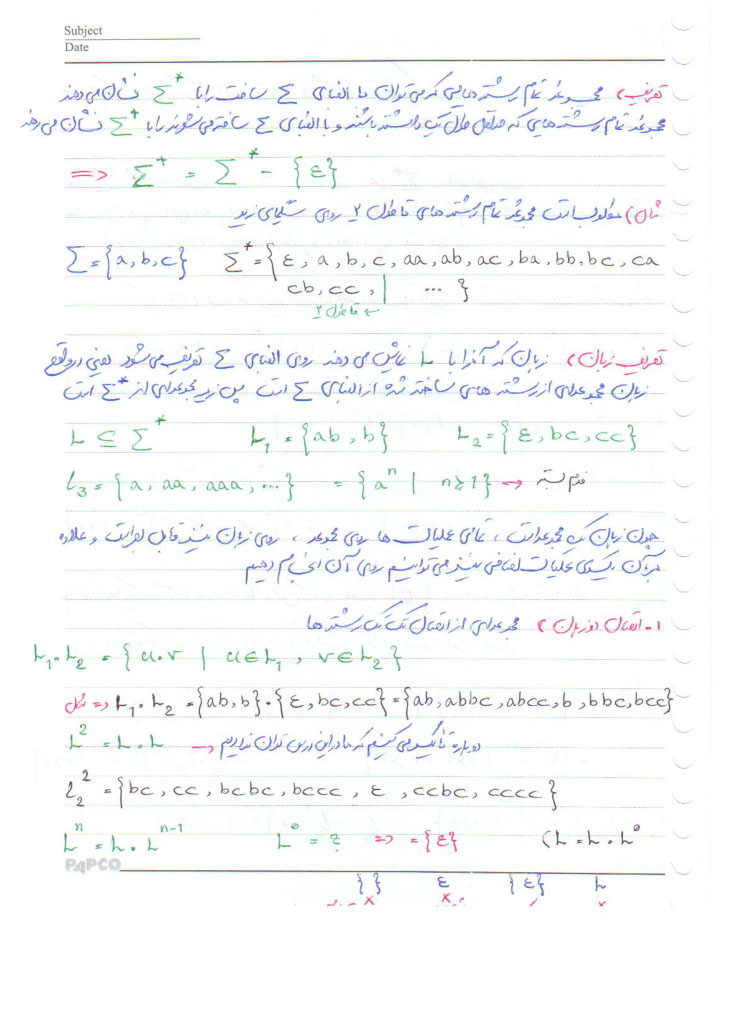 Subject
Date
تعریف) مجموعه تمام رشته هایی که می توان با الفبای Σ ساخت را با Σ* نشان می دهند
مجموعه تمام رشته هایی که حداقل طول یک داشته باشند و با الفبای Σ ساخته می شوند را با Σ⁺ نشان می دهند
=> Σ⁺ = Σ* - {ε}
مثال) مطلوب است مجموعه تمام رشته های تا طول ۲ روی سیگمای زیر
Σ = {a, b, c} Σ* = {ε, a, b, c, aa, ab, ac, ba, bb, bc, ca
cb, cc, | ... }
تا طول ۲
تعریف زبان) زبان که آنرا با L نمایش می دهند روی الفبای Σ تعریف می شود یعنی در واقع
زبان مجموعه ای از رشته های ساخته شده از الفبای Σ است پس زیر مجموعه ای از Σ* است
L ⊆ Σ* L₁ = {ab, b} L₂ = {ε, bc, cc}
L₃ = {a, aa, aaa, ...} = {aⁿ | n ≥ 1} → فرم بسته
چون زبان یک مجموعه است، تمامی عملیات ها روی مجموعه، روی زبان نیز قابل اجراست و علاوه
بر آن یکسری عملیات اضافی نیز می توانیم روی آن انجام دهیم
۱- اتصال دو زبان) مجموعه ای از اتصال تک تک رشته ها
L₁.L₂ = {u.v | u∈L₁, v∈L₂}
مثال => L₁.L₂ = {ab, b}.{ε, bc, cc} = {ab, abbc, abcc, b, bbc, bcc}
L² = L.L → دوباره تأکید می کنیم که ما در این درس توان نداریم
L₂² = {bc, cc, bcbc, bccc, ε, ccbc, cccc}
Lⁿ = L.Lⁿ⁻¹ L⁰ = ? => = {ε} (L = L.L⁰
PAPCO
{ } ε {ε} L